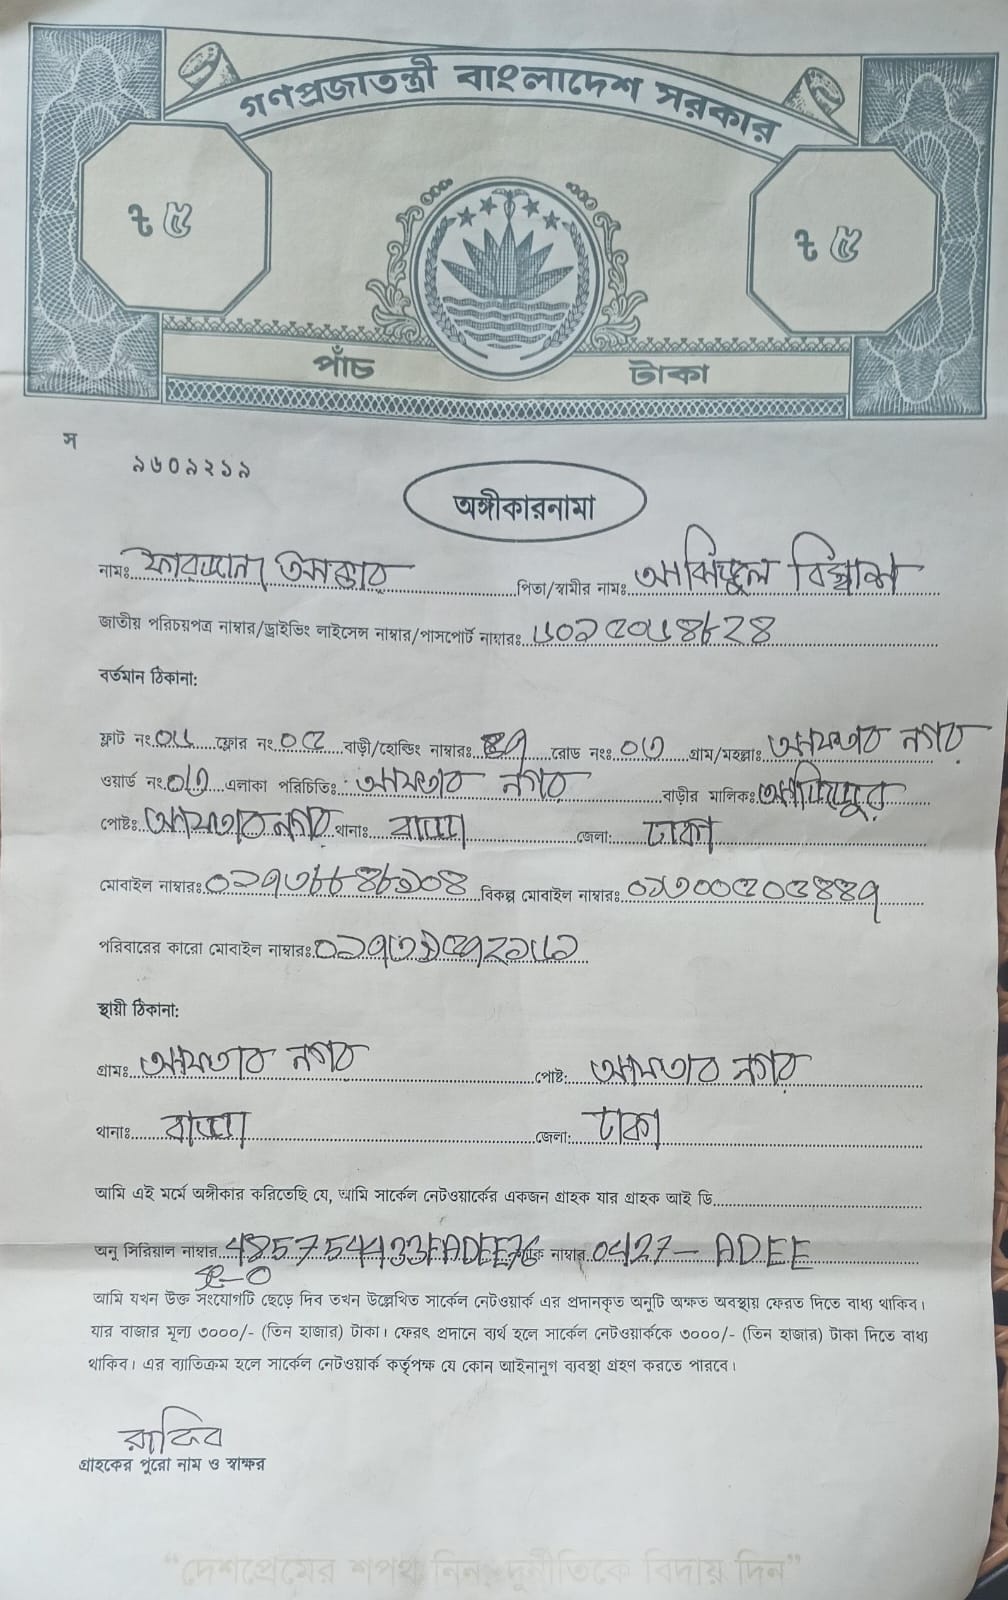 গণপ্রজাতন্ত্রী বাংলাদেশ সরকার
৳ ৫ ৳ ৫
পাঁচ টাকা
স
৯৬০৯২১৯
অঙ্গীকারনামা
নামঃ ফারজানা আক্তার পিতা/স্বামীর নামঃ বিশ্বাস
জাতীয় পরিচয়পত্র নাম্বার/ড্রাইভিং লাইসেন্স নাম্বার/পাসপোর্ট নাম্বারঃ
বর্তমান ঠিকানা:
ফ্লাট নং ০৬ ফ্লোর নং ০৫ বাড়ী/হোল্ডিং নাম্বারঃ ৪৭ রোড নংঃ ০৩ গ্রাম/মহল্লাঃ আফতাব নগর
ওয়ার্ড নং এলাকা পরিচিতিঃ আফতাব নগর বাড়ীর মালিকঃ
পোষ্টঃ আফতাব নগর থানাঃ বাড্ডা জেলা: ঢাকা
মোবাইল নাম্বারঃ বিকল্প মোবাইল নাম্বারঃ
পরিবারের কারো মোবাইল নাম্বারঃ
স্থায়ী ঠিকানা:
গ্রামঃ আফতাব নগর পোষ্ট: আফতাব নগর
থানাঃ বাড্ডা জেলা: ঢাকা
আমি এই মর্মে অঙ্গীকার করিতেছি যে, আমি সার্কেল নেটওয়ার্কের একজন গ্রাহক যার গ্রাহক আই ডি
অনু সিরিয়াল নাম্বার 485754433FADEE76 নাম্বার 0427-ADEE
আমি যখন উক্ত সংযোগটি ছেড়ে দিব তখন উল্লেখিত সার্কেল নেটওয়ার্ক এর প্রদানকৃত অনুটি অক্ষত অবস্থায় ফেরত দিতে বাধ্য থাকিব।
যার বাজার মূল্য ৩০০০/- (তিন হাজার) টাকা। ফেরৎ প্রদানে ব্যর্থ হলে সার্কেল নেটওয়ার্ককে ৩০০০/- (তিন হাজার) টাকা দিতে বাধ্য
থাকিব। এর ব্যতিক্রম হলে সার্কেল নেটওয়ার্ক কর্তৃপক্ষ যে কোন আইনানুগ ব্যবস্থা গ্রহণ করতে পারবে।
রাকিব
গ্রাহকের পুরো নাম ও স্বাক্ষর
“দেশপ্রেমের শপথ নিন, দুর্নীতিকে বিদায় দিন”